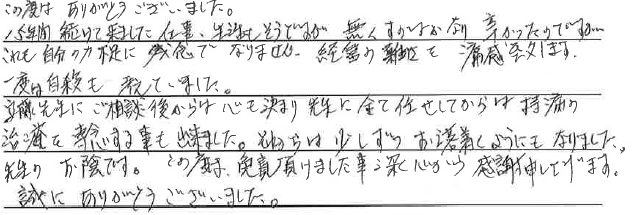 この度は ありがとうございました。
15年間 続けて来ました 仕事、生活もそうですが 無くすのはかなり 辛かったのですが
これも自分の力不足に 残念で なりません。 経営の難しさを 痛感致します。
一度は自殺も 考えていました。
先生に ご相談後からは 心も決まり 先生に 全て任せしてからは 持病の
治療を 専念する事も 出来ました。 それからは 少しずつ お落着くようにもなりました。
先生の お陰です。 この度は、免責頂けました事を深く心から 感謝申し上げます。
誠に ありがとう ございました。